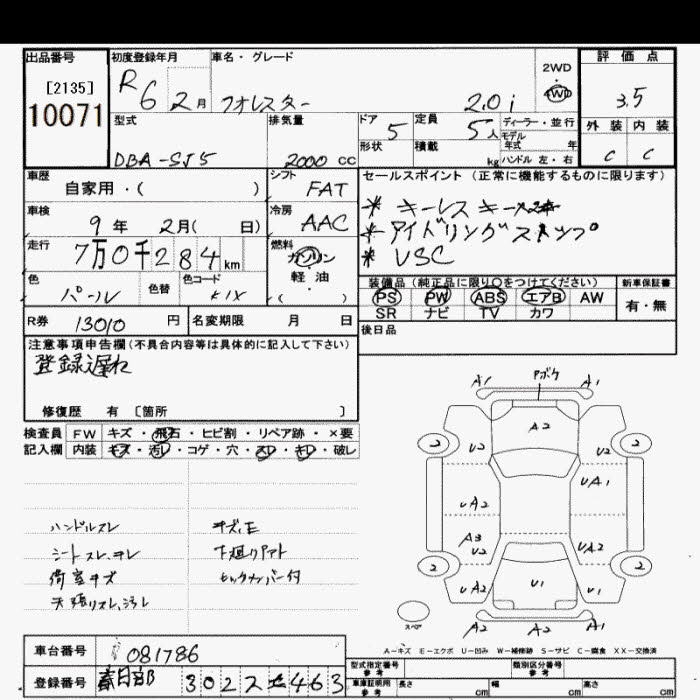 出品番号 初度登録年月 車名・グレード 評価点
[2135] R6 2月 フォレスター 2.0i 2WD 4WD 3.5
10071
型式 排気量 ドア 5 定員 5人 ディーラー・並行 外装 内装
DBA-SJ5 2000 cc 形状 積載 kg モデル年式 年 ハンドル 左・右 C C
車歴 自家用・( ) シフト FAT セールスポイント (正常に機能するものに限ります)
車検 9年 2月( 日) 冷房 AAC * キーレスキー
走行 7万0千284km 燃料 ガソリン 軽・油 ( ) * アイドリングストップ
* VSC
色 パール 色替 色コード K1X 装備品 (純正品に限り○をつけてください) 新車保証書
PS PW ABS エアB AW 有・無
SR ナビ TV カワ
R券 13010 円 名変期限 月 日 後日品
注意事項申告欄(不具合内容等は具体的に記入して下さい)
登録遅れ
修復歴 有 〔箇所 〕
検査員 FW キズ・飛石・ヒビ割・リペア跡・×要
記入欄 内装 キズ・汚レ・コゲ・穴・スレ・キレ・破レ
ハンドルスレ キズ、E
シートスレ、ヨレ 下廻りサビ
荷室キズ
天張リスレ、汚レ
A1 Pボケ A1
A2
2 U2 U2 2
UA1
UA2
A3 U2 UA2
2 2
UA2 U1 U1
スペア A2 A2
A-キズ E-エクボ U-凹み W-補修跡 S-サビ C-腐食 XX-交換済
車台番号 081786
登録番号 春日部 302 そ 463
型式指定番号 参考 類別区分番号 参考
車庫証明用 参考 長さ cm 幅 cm 高さ cm